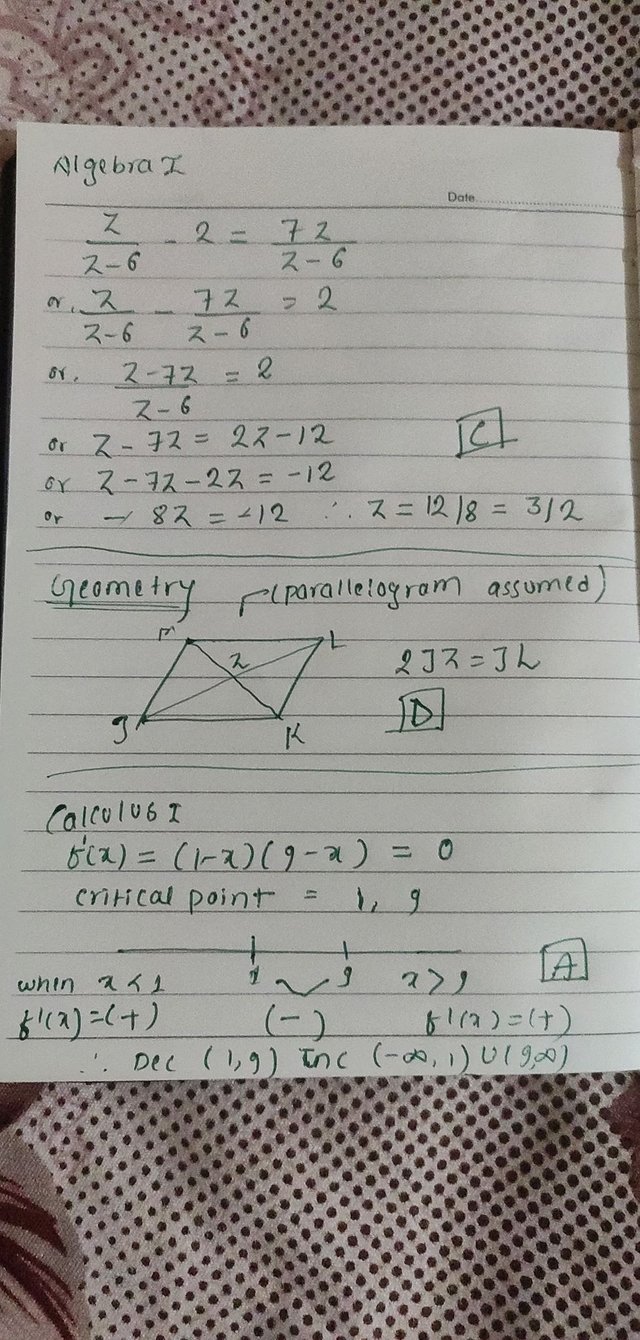 Algebra I
Date
z/z-6 - 2 = 7z/z-6
or, z/z-6 - 7z/z-6 = 2
or, z-7z/z-6 = 2
or z-7z = 2z-12
C
or z-7z-2z = -12
or -8z = -12 ∴ z = 12/8 = 3/2
Geometry (parallelogram assumed)
L
z
2JZ = JL
D
J K
Calculus I
f'(x) = (1-x)(9-x) = 0
critical point = 1, 9
1 9
A
when x<1 x>9
f'(x)=(+) (-) f'(x)=(+)
∴ Dec (1,9) Inc (-∞,1)U(9,∞)